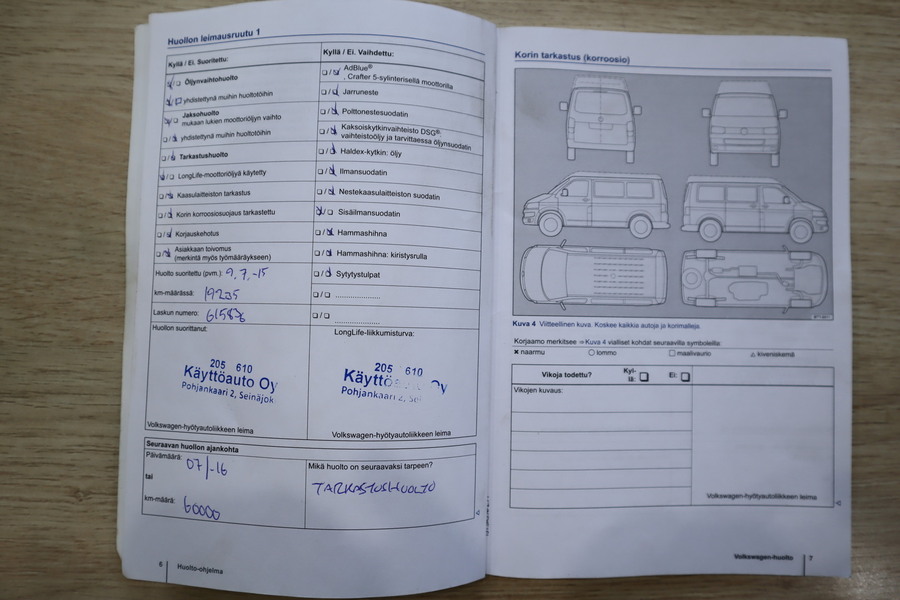 Huollon leimausruutu 1
Kyllä / Ei. Suoritettu:
Öljynvaihtohuolto
yhdistettynä muihin huoltotöihin
Jaksohuolto
mukaan lukien moottoriöljyn vaihto
yhdistettynä muihin huoltotöihin
Tarkastushuolto
LongLife-moottoriöljyä käytetty
Kaasulaitteiston tarkastus
Korin korroosiosuojaus tarkastettu
Korjauskehotus
Asiakkaan toivomus
(merkintä myös työmääräykseen)
Huolto suoritettu (pvm.): 9.7.-15
km-määrässä: 19235
Laskun numero:
Huollon suorittanut:
205 610
Käyttöauto Oy
Pohjankaari 2, Seinäjok
Volkswagen-hyötyautoliikkeen leima
Kyllä / Ei. Vaihdettu:
AdBlue®
, Crafter 5-sylinterisellä moottorilla
Jarruneste
Polttonestesuodatin
Kaksoiskytkinvaihteisto DSG®:
vaihteistoöljy ja tarvittaessa öljynsuodatin
Haldex-kytkin: öljy
Ilmansuodatin
Nestekaasulaitteiston suodatin
Sisäilmansuodatin
Hammashihna
Hammashihna: kiristysrulla
Sytytystulpat
LongLife-liikkumisturva:
205 610
Käyttö Oy
Pohjankaari 2, Sei
Volkswagen-hyötyautoliikkeen leima
Seuraavan huollon ajankohta
Päivämäärä: 07/-16
tai
km-määrä: 60000
Mikä huolto on seuraavaksi tarpeen?
TARKASTUSHUOLTO
6 Huolto-ohjelma
Korin tarkastus (korroosio)
Kuva 4 Viitteellinen kuva. Koskee kaikkia autoja ja korimalleja.
Korjaamo merkitsee ⇒ Kuva 4 vialliset kohdat seuraavilla symboleilla:
✖ naarmu ○ lommo □ maalivaurio △ kiveniskemä
Vikoja todettu? Kyl-
lä: Ei:
Vikojen kuvaus:
Volkswagen-hyötyautoliikkeen leima
Volkswagen-huolto 7